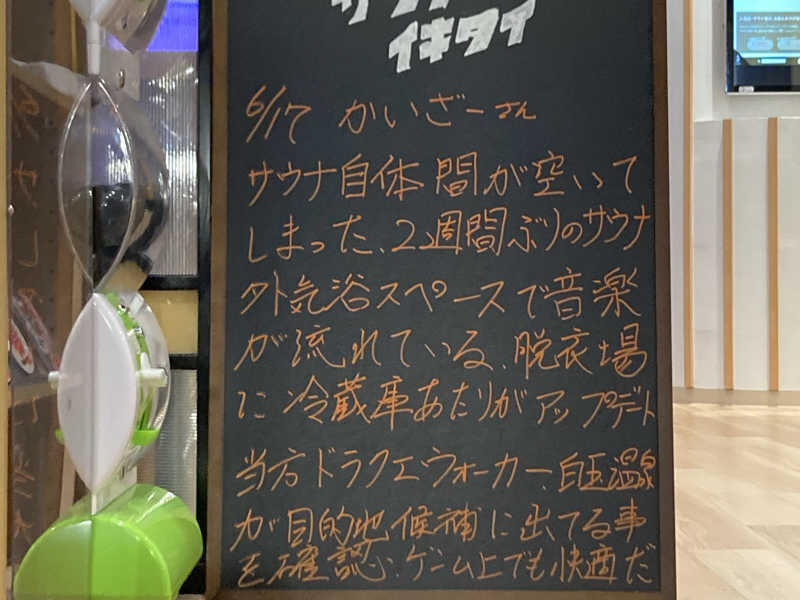 サウナ
イキタイ
6/17 かいざーさん
サウナ自体間が空いて
しまった、2週間ぶりのサウナ
外気浴スペースで音楽
が流れている、脱衣場
に冷蔵庫あたりがアップデート
当方ドラクエウォーカー、白玉温泉
が目的地候補に出てる事
を確認、ゲーム上でも快適だ